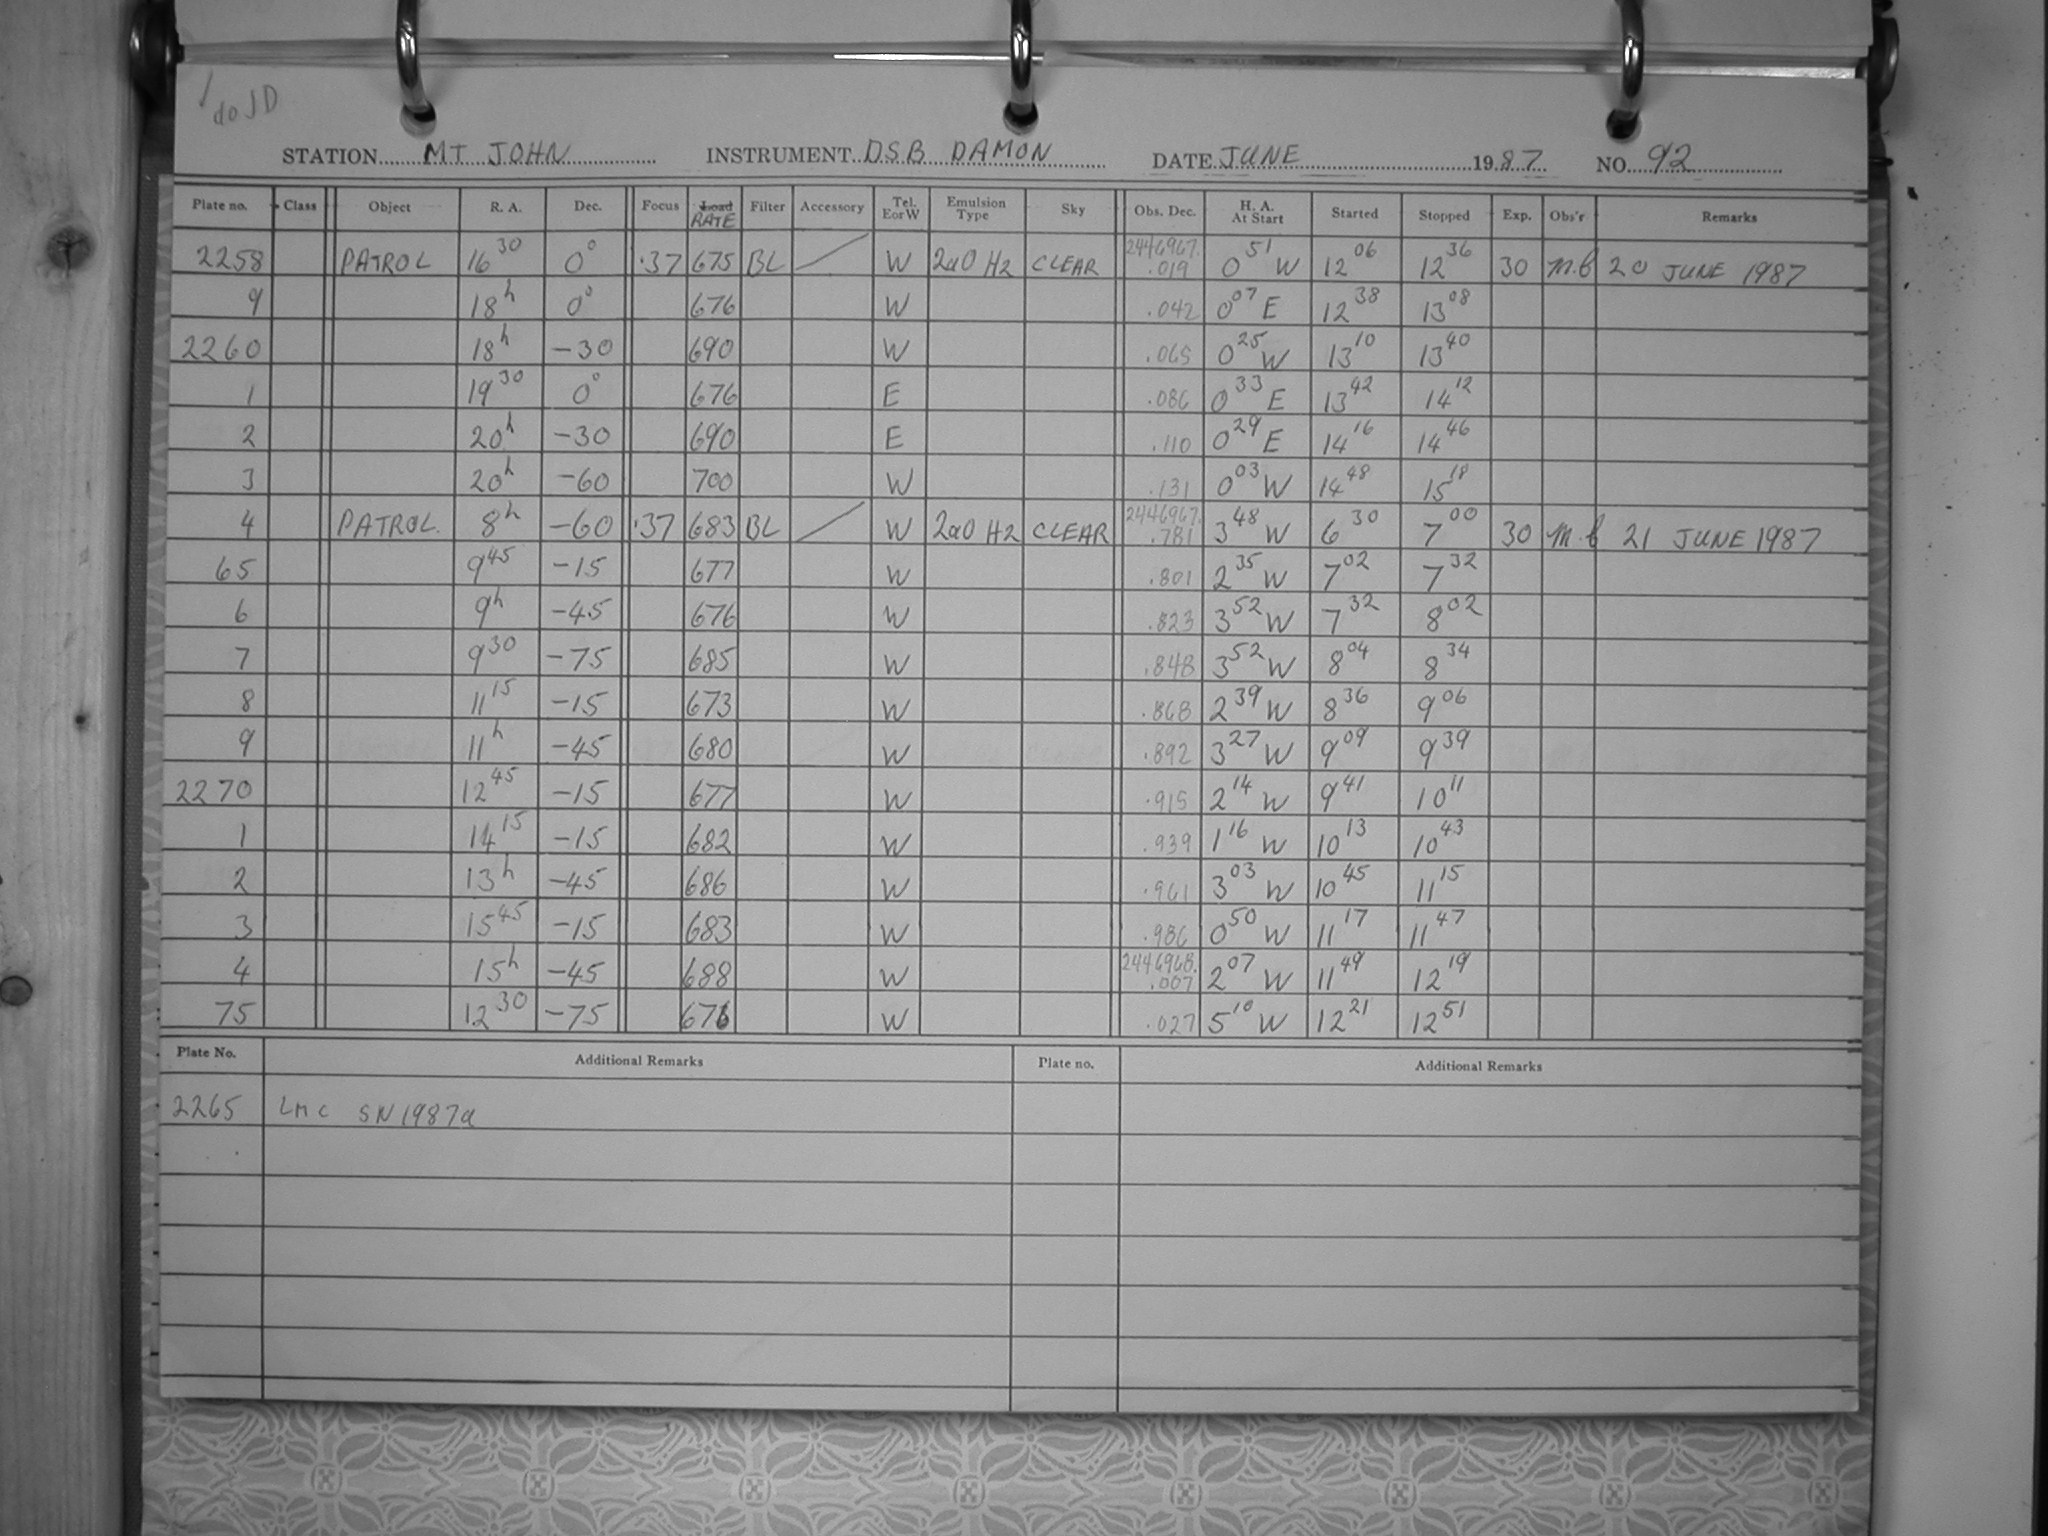 do JD
STATION MT JOHN INSTRUMENT DSB DAMON DATE JUNE 1987 NO. 92
Plate no. Class Object R. A. Dec. Focus Load RATE Filter Accessory Tel. E or W Emulsion Type Sky Obs. Dec. H. A. At Start Started Stopped Exp. Obs'r Remarks
2258 PATROL 16 30 0° .37 675 BL W 2a0 H2 CLEAR 2446967.019 0 51 W 12 06 12 36 30 m.b 20 JUNE 1987
9 18h 0° 676 W .042 0 07 E 12 38 13 08
2260 18h -30 690 W .065 0 25 W 13 10 13 40
1 19 30 0° 676 E .086 0 33 E 13 42 14 12
2 20h -30 690 E .110 0 29 E 14 16 14 46
3 20h -60 700 W .131 0 03 W 14 48 15 18
4 PATROL. 8h -60 .37 683 BL W 2a0 H2 CLEAR 2446967.781 3 48 W 6 30 7 00 30 m.b 21 JUNE 1987
65 9 45 -15 677 W .801 2 35 W 7 02 7 32
6 9h -45 676 W .823 3 52 W 7 32 8 02
7 9 30 -75 685 W .848 3 52 W 8 04 8 34
8 11 15 -15 673 W .868 2 39 W 8 36 9 06
9 11h -45 680 W .892 3 27 W 9 09 9 39
2270 12 45 -15 677 W .915 2 14 W 9 41 10 11
1 14 15 -15 682 W .939 1 16 W 10 13 10 43
2 13h -45 686 W .961 3 03 W 10 45 11 15
3 15 45 -15 683 W .986 0 50 W 11 17 11 47
4 15h -45 688 W 2446968.007 2 07 W 11 49 12 19
75 12 30 -75 676 W .027 5 10 W 12 21 12 51
Plate No. Additional Remarks Plate no. Additional Remarks
2265 LMC SN1987a